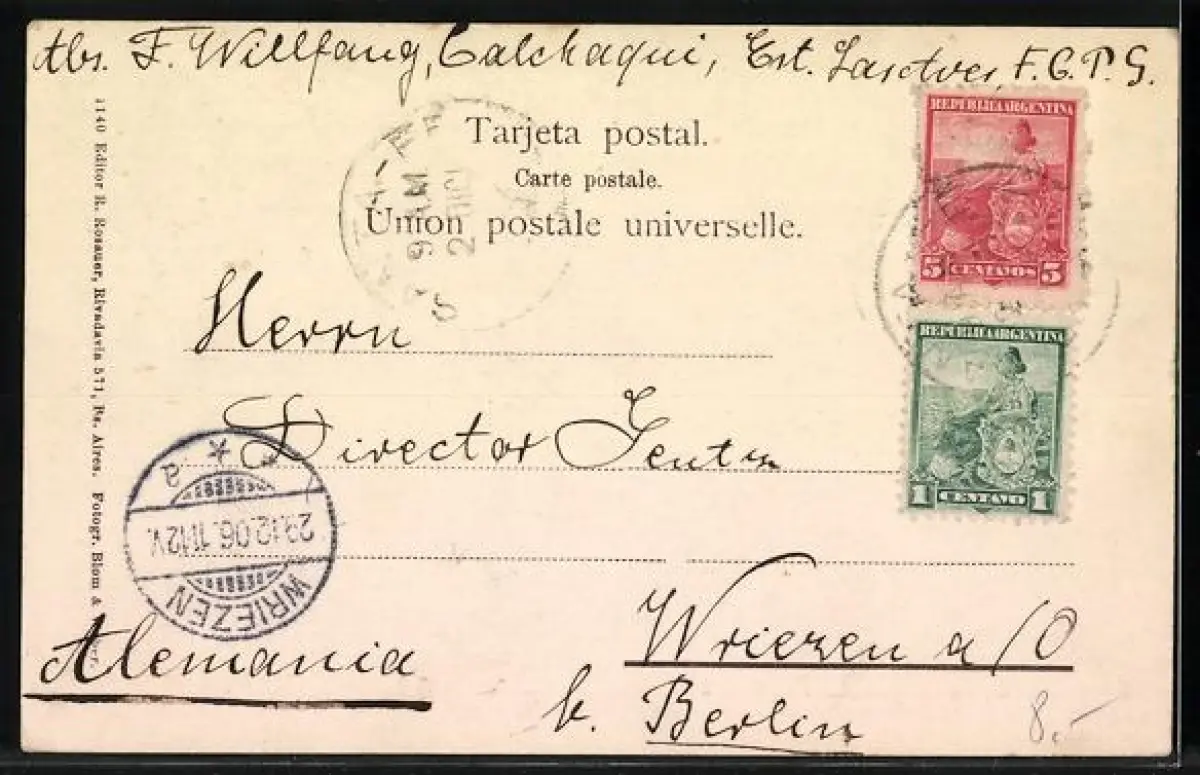 Abs. F. Willfang, Calchaqui, Est. F.C.P.S.
Tarjeta postal.
Carte postale.
Union postale universelle.
REPUBLICA ARGENTINA
5 CENTAVOS 5
REPUBLICA ARGENTINA
1 CENTAVO 1
9 AM
Herrn
Director
Wriezen a/O
b. Berlin
Alemania
WRIEZEN
29.12.06.11-12V.
* a
1140 Editor R. Rosauer, Rivadavia 571, Bs. Aires. Fotogr. Blom &
8,-